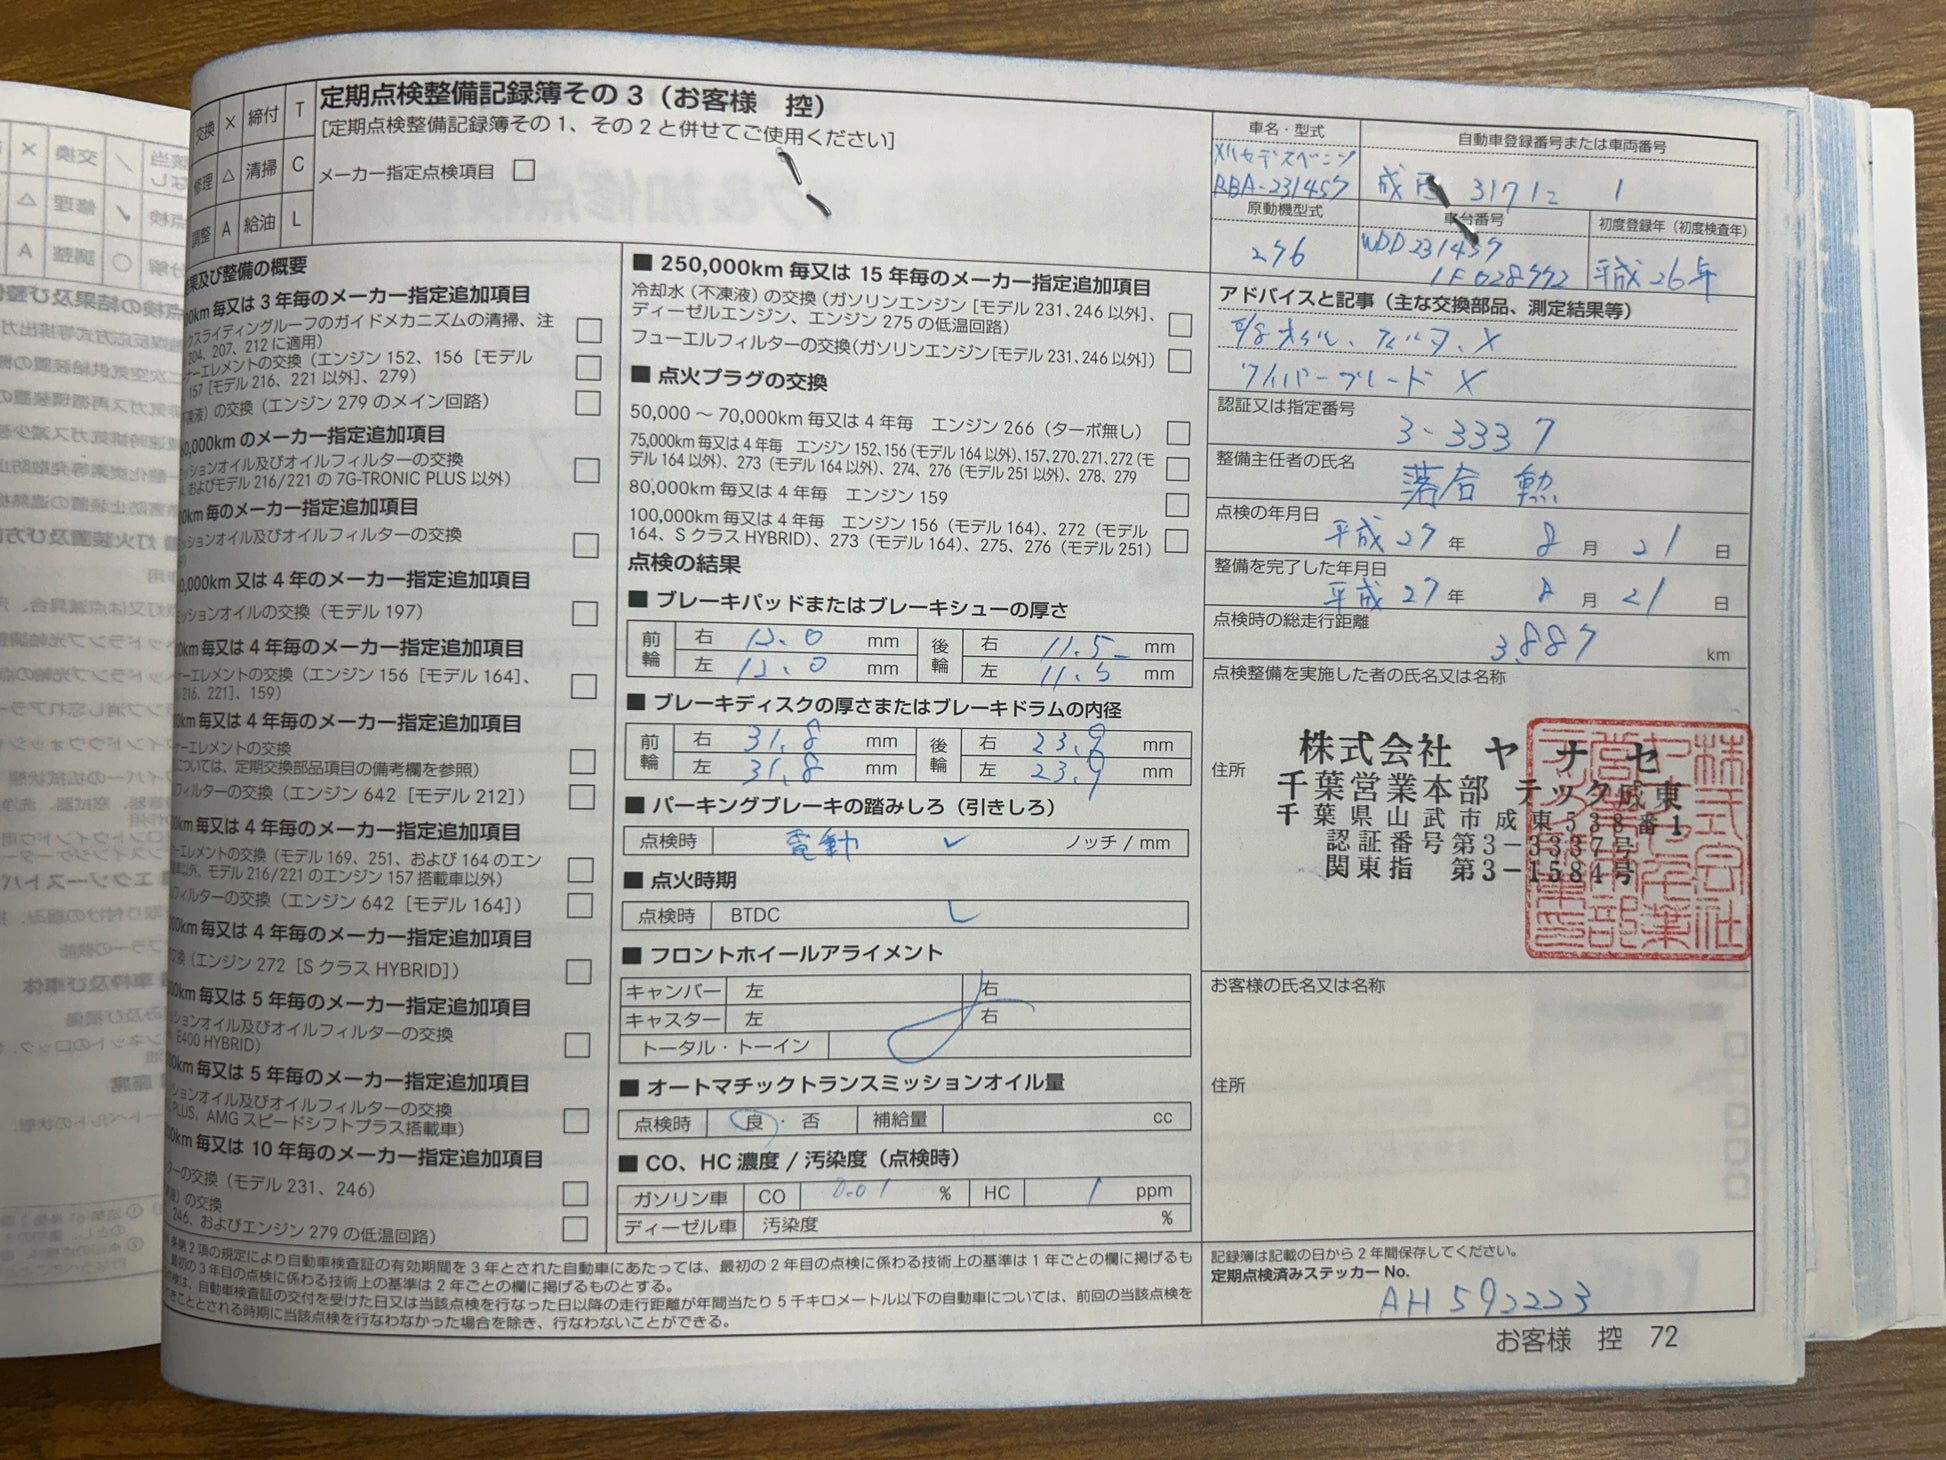 交換 × 締付 T
修理 △ 清掃 C
調整 A 給油 L
定期点検整備記録簿その3（お客様 控）
[定期点検整備記録簿その1、その2と併せてご使用ください]
メーカー指定点検項目 □
車名・型式
メルセデスベンツ
RBA-231457
自動車登録番号または車両番号
成田 317 に 1
原動機型式
276
車台番号
WDD231457
1F028772
初度登録年（初度検査年）
平成26年
果及び整備の概要
0km 毎又は 3 年毎のメーカー指定追加項目
クスライディングルーフのガイドメカニズムの清掃、注
204、207、212 に適用） □
ナーエレメントの交換（エンジン 152、156［モデル
157［モデル 216、221 以外］、279） □
不凍液）の交換（エンジン 279 のメイン回路） □
0,000km のメーカー指定追加項目
ッションオイル及びオイルフィルターの交換
、およびモデル 216/221 の 7G-TRONIC PLUS 以外） □
0km 毎のメーカー指定追加項目
ッションオイル及びオイルフィルターの交換 □
0,000km 又は 4 年毎のメーカー指定追加項目
ッションオイルの交換（モデル 197） □
00km 毎又は 4 年毎のメーカー指定追加項目
ナーエレメントの交換（エンジン 156［モデル 164］、
216、221］、159） □
0km 毎又は 4 年毎のメーカー指定追加項目
ナーエレメントの交換
については、定期交換部品項目の備考欄を参照） □
フィルターの交換（エンジン 642［モデル 212］） □
0km 毎又は 4 年毎のメーカー指定追加項目
ーエレメントの交換（モデル 169、251、および 164 のエン
以外、モデル 216/221 のエンジン 157 搭載車以外） □
ルフィルターの交換（エンジン 642［モデル 164］） □
000km 毎又は 4 年毎のメーカー指定追加項目
交換（エンジン 272［S クラス HYBRID］） □
000km 毎又は 5 年毎のメーカー指定追加項目
ションオイル及びオイルフィルターの交換
E400 HYBRID） □
000km 毎又は 5 年毎のメーカー指定追加項目
ションオイル及びオイルフィルターの交換
PLUS、AMG スピードシフトプラス搭載車） □
00km 毎又は 10 年毎のメーカー指定追加項目
ターの交換（モデル 231、246） □
の交換
246、およびエンジン 279 の低温回路） □
■ 250,000km 毎又は 15 年毎のメーカー指定追加項目
冷却水（不凍液）の交換（ガソリンエンジン［モデル 231、246 以外］、
ディーゼルエンジン、エンジン 275 の低温回路） □
フューエルフィルターの交換（ガソリンエンジン［モデル 231、246 以外］） □
■ 点火プラグの交換
50,000 ～ 70,000km 毎又は 4 年毎 エンジン 266（ターボ無し） □
75,000km 毎又は 4 年毎 エンジン 152、156（モデル 164 以外）、157、270、271、272（モ
デル 164 以外）、273（モデル 164 以外）、274、276（モデル 251 以外）、278、279 □
80,000km 毎又は 4 年毎 エンジン 159 □
100,000km 毎又は 4 年毎 エンジン 156（モデル 164）、272（モデル
164、S クラス HYBRID）、273（モデル 164）、275、276（モデル 251） □
点検の結果
■ ブレーキパッドまたはブレーキシューの厚さ
前輪 右 12.0 mm 後輪 右 11.5 mm
左 12.0 mm 左 11.5 mm
■ ブレーキディスクの厚さまたはブレーキドラムの内径
前輪 右 31.8 mm 後輪 右 23.9 mm
左 31.8 mm 左 23.9 mm
■ パーキングブレーキの踏みしろ（引きしろ）
点検時 電動 ✓ ノッチ / mm
■ 点火時期
点検時 BTDC ✓
■ フロントホイールアライメント
キャンバー 左 右
キャスター 左 右
トータル・トーイン
■ オートマチックトランスミッションオイル量
点検時 良 ・ 否 補給量 cc
■ CO、HC 濃度 / 汚染度（点検時）
ガソリン車 CO 0.01 % HC 1 ppm
ディーゼル車 汚染度 %
アドバイスと記事（主な交換部品、測定結果等）
E/g オイル、フィルタ、X
ワイパーブレード X
認証又は指定番号
3-3337
整備主任者の氏名
落合 勲
点検の年月日
平成 27 年 8 月 21 日
整備を完了した年月日
平成 27 年 8 月 21 日
点検時の総走行距離
3,887 km
点検整備を実施した者の氏名又は名称
株式会社 ヤナセ
住所
千葉営業本部 テック成東
千葉県山武市成東538番1
認証番号第3-3337号
関東指 第3-1584号
お客様の氏名又は名称
住所
条第 2 項の規定により自動車検査証の有効期間を 3 年とされた自動車にあたっては、最初の 2 年目の点検に係わる技術上の基準は 1 年ごとの欄に掲げるも
、最初の 3 年目の点検に係わる技術上の基準は 2 年ごとの欄に掲げるものとする。
点検は、自動車検査証の交付を受けた日又は当該点検を行なった日以降の走行距離が年間当たり 5 千キロメートル以下の自動車については、前回の当該点検を
べきこととされる時期に当該点検を行なわなかった場合を除き、行なわないことができる。
記録簿は記載の日から 2 年間保存してください。
定期点検済みステッカー No.
AH 592223
お客様 控 72